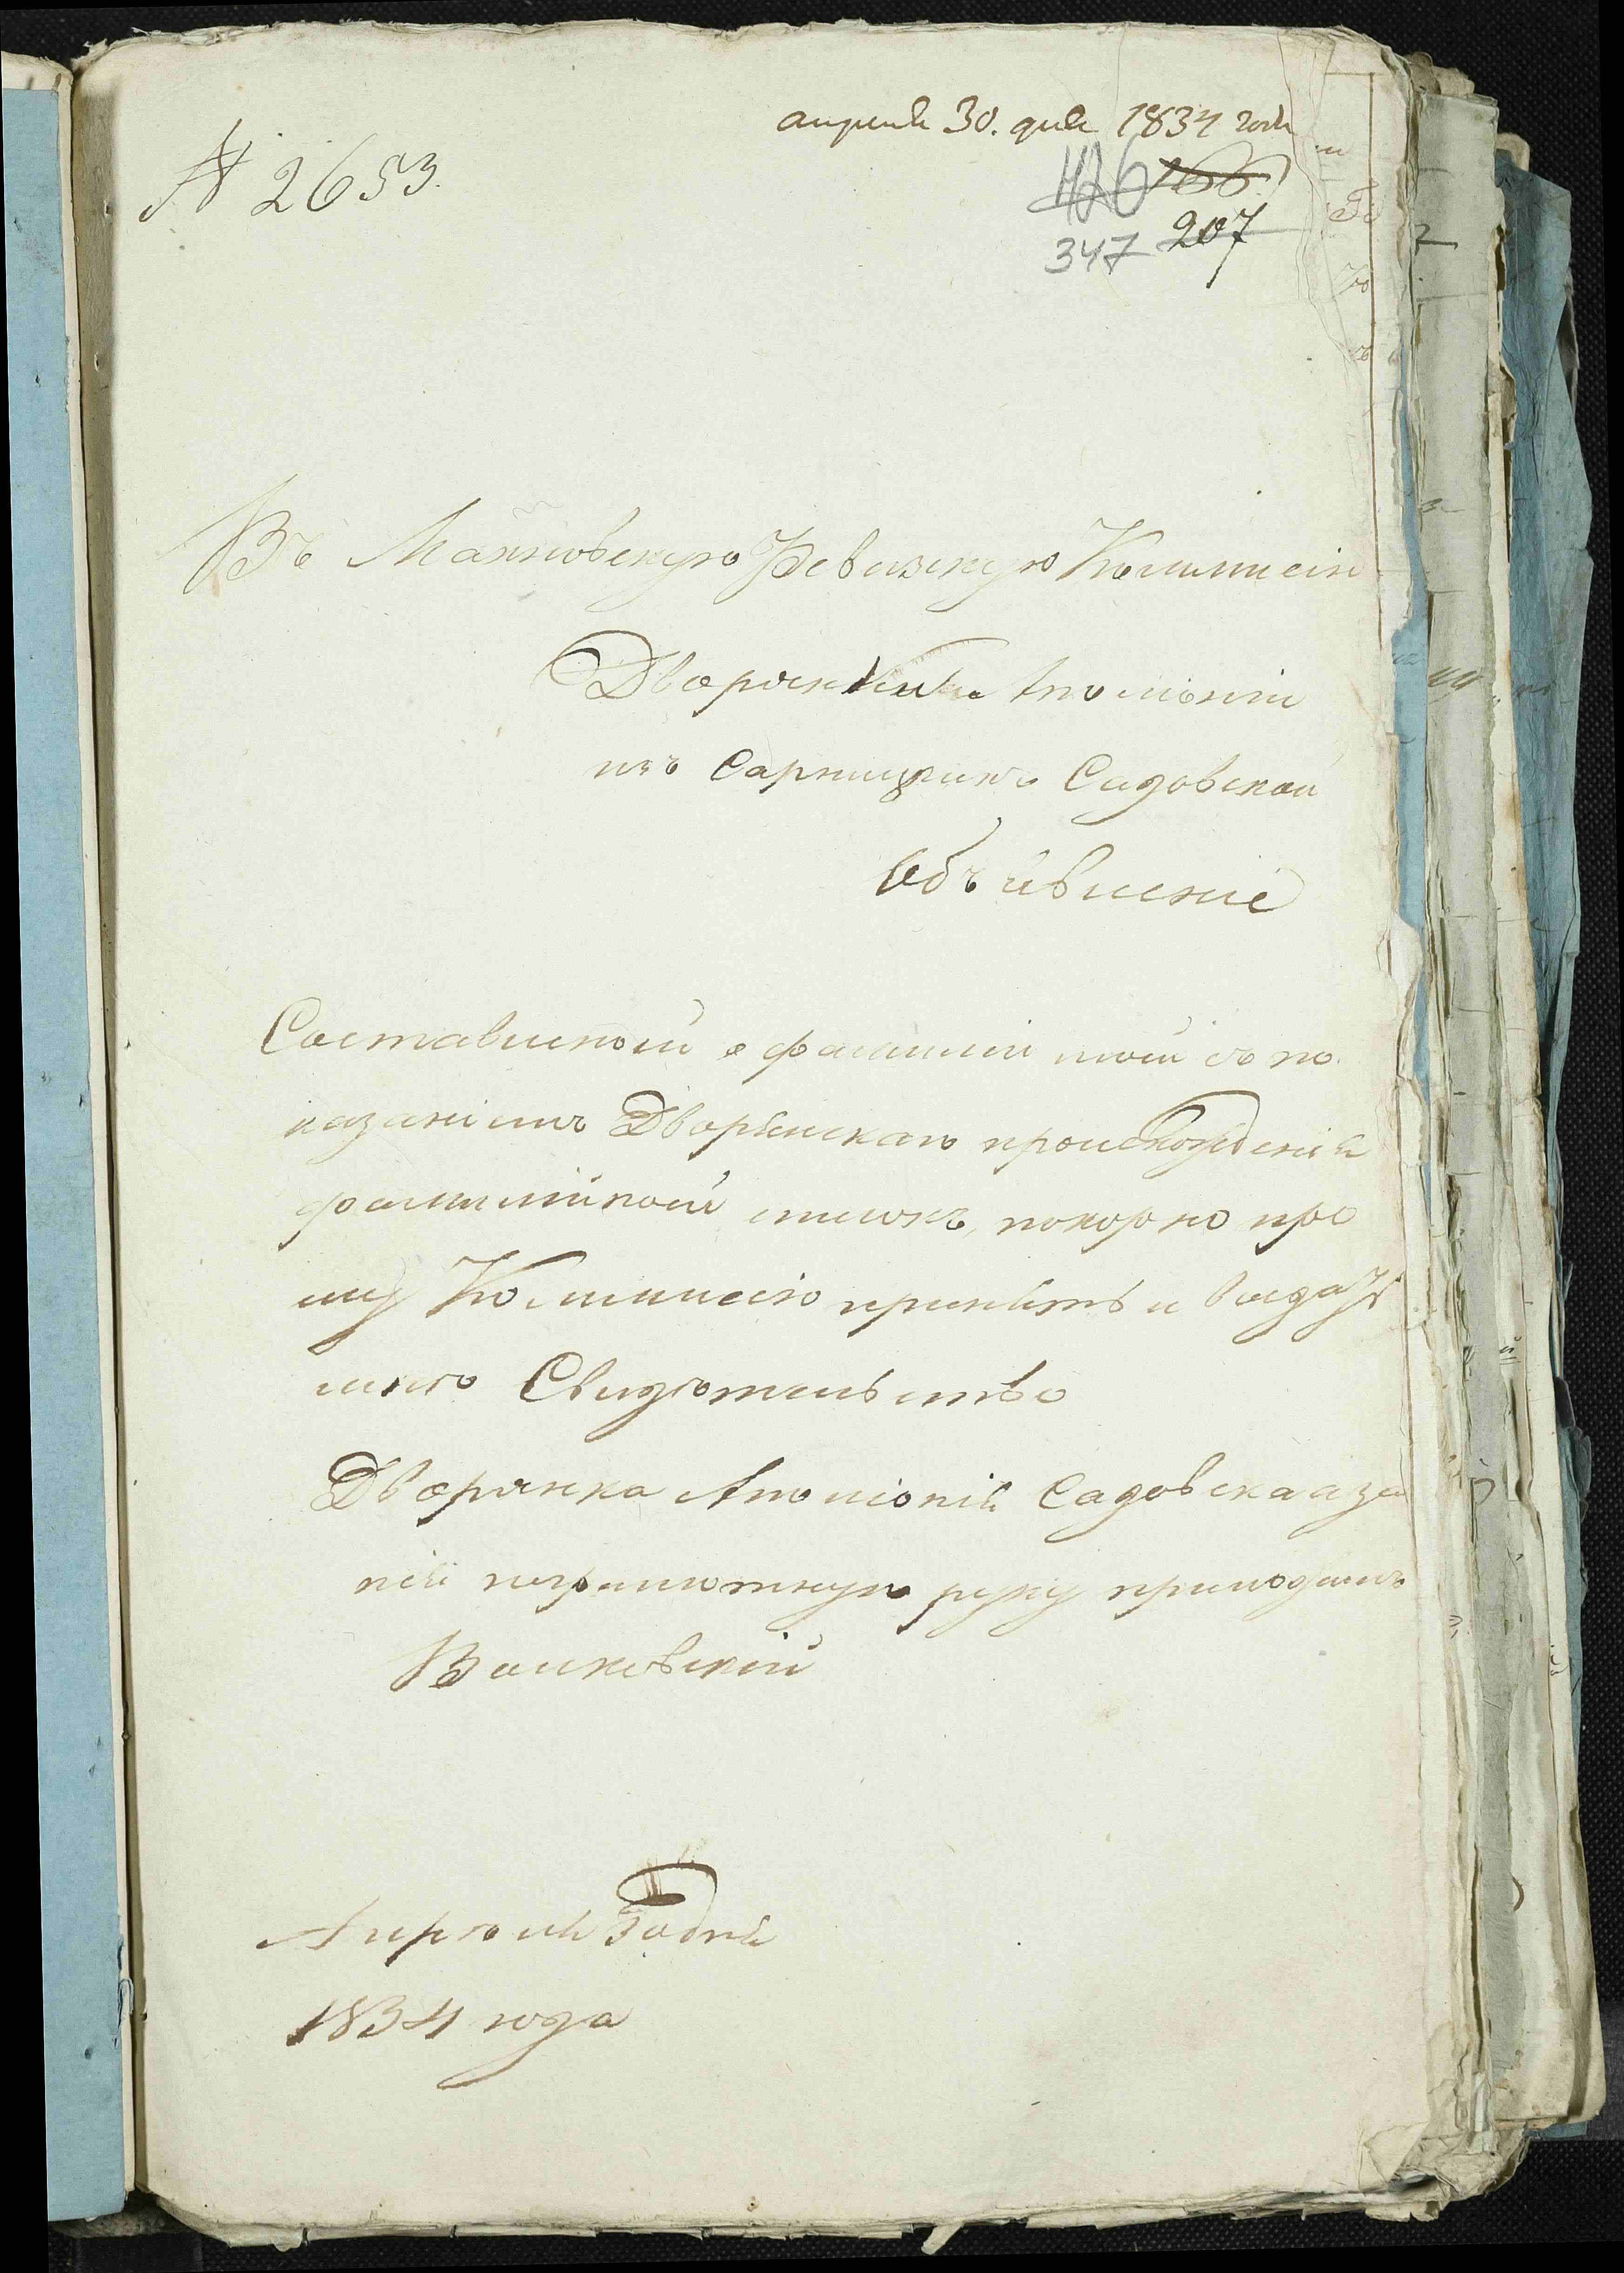 апреля 30. дня 1834 года
№ 2653.
426 166
347 207
Въ Махновскую Ревизкую Коммисію
Дворянки Апполоніи
изъ Сарницкихъ Садовской
Объявленіе
Составленой о фамиліи моей съ по
казаніемъ Дворянскаго происхожденія
фамилійной списокъ, покорно про
шу Коммисію принять и выдать
мнѣ Свидѣтельство
Дворянка Апполонія Садовская а за
неграмотную руку приложилъ
Волковскій
Апрѣля 30 дня
1834 года